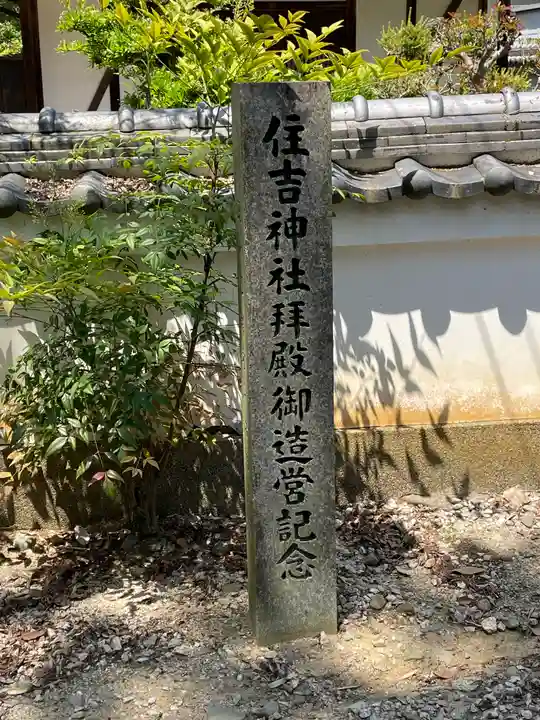 住吉神社拝殿御造営記念